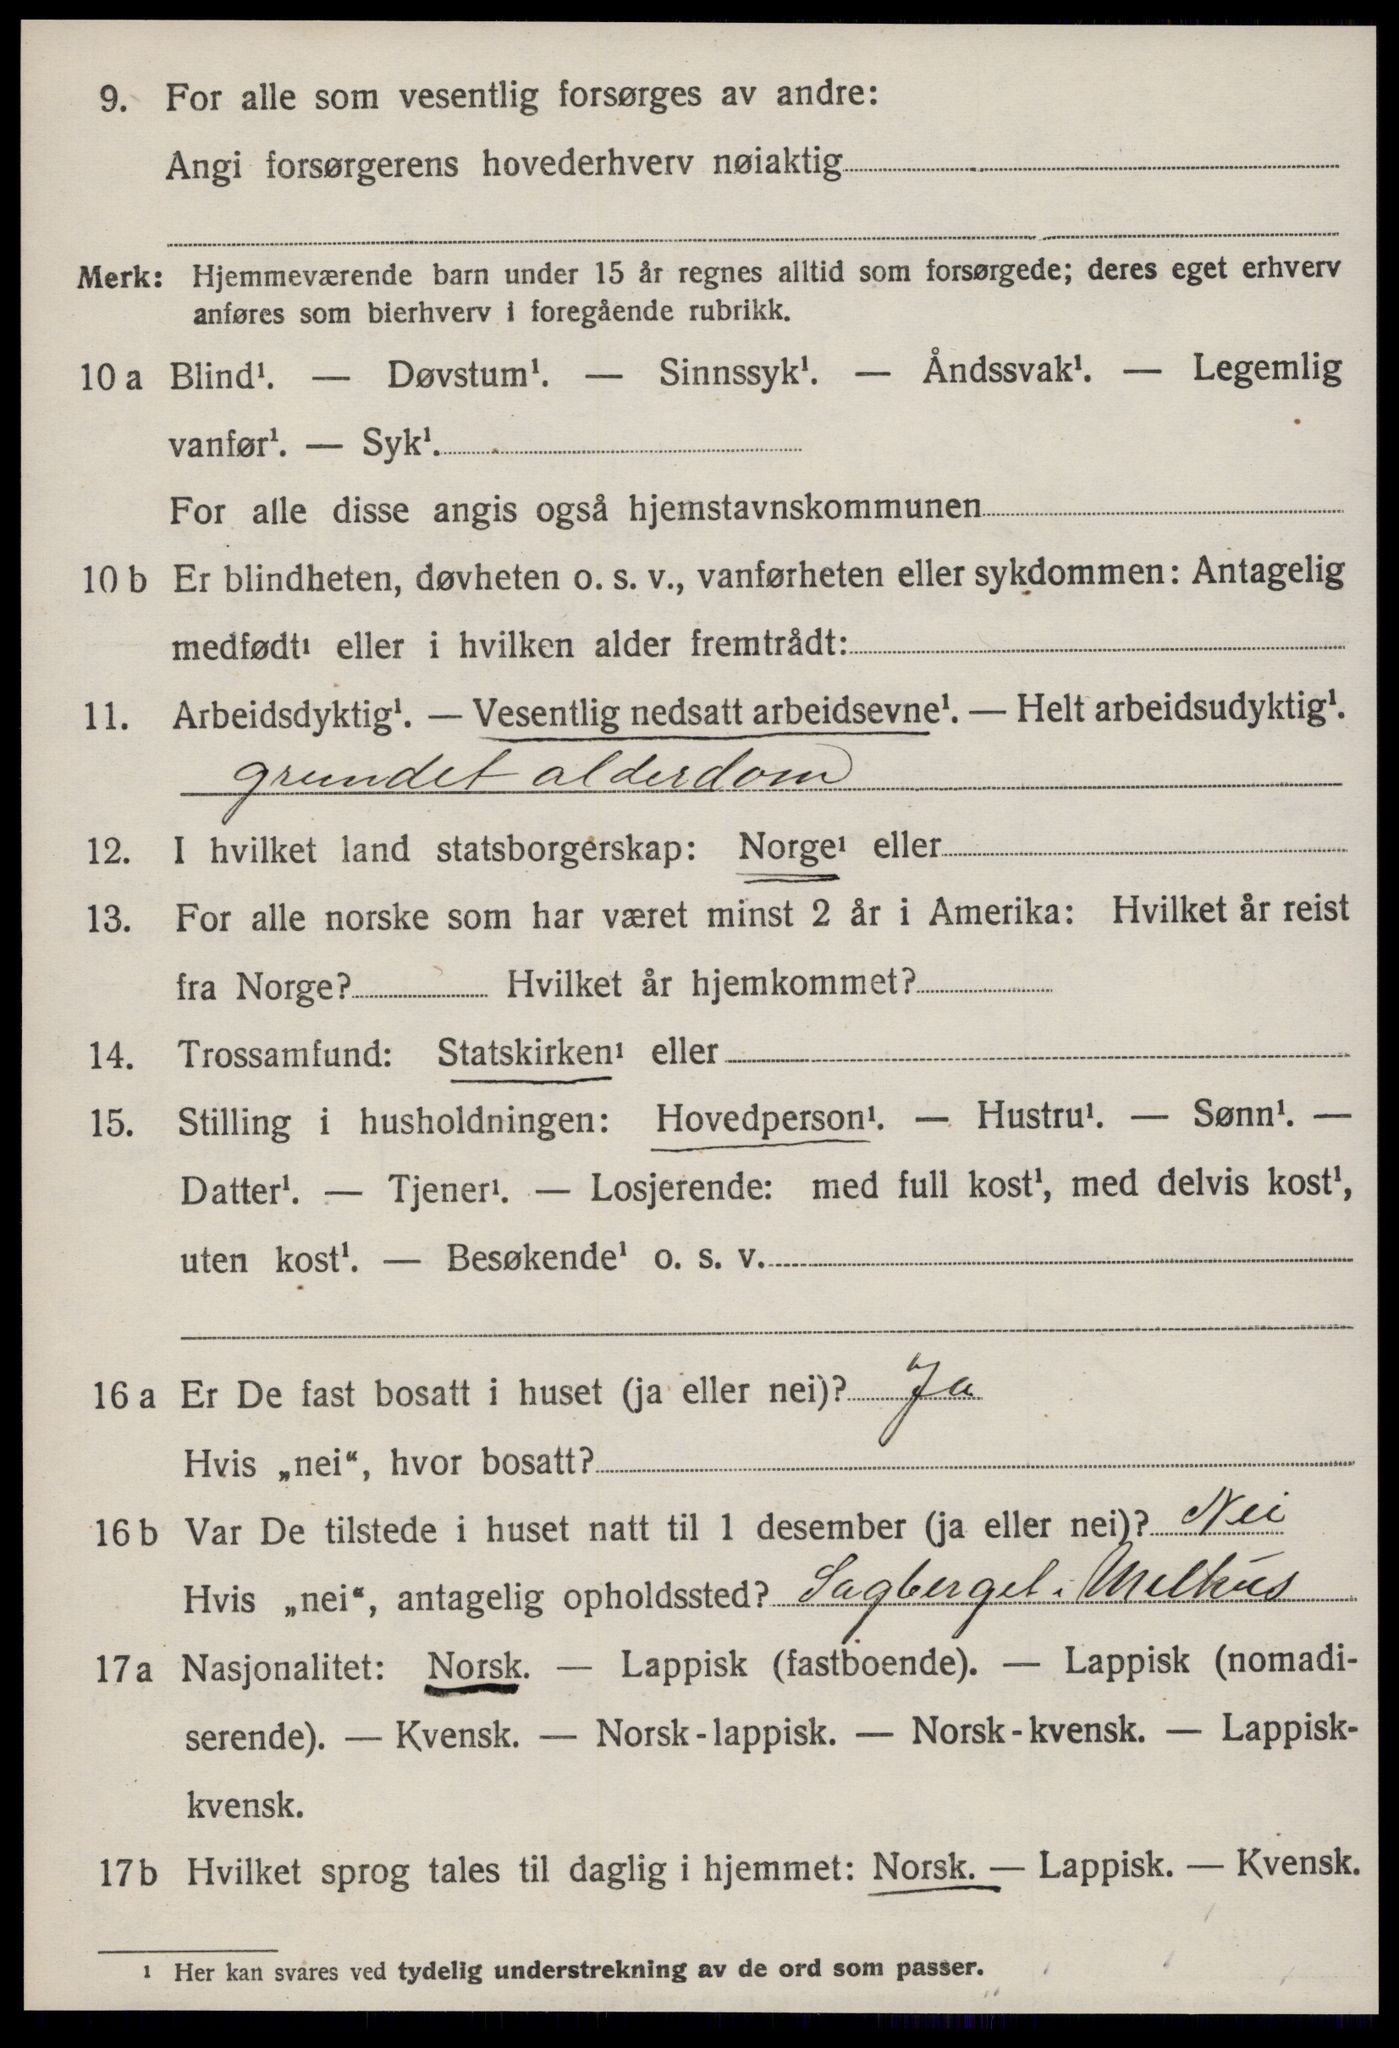 9. For alle som vesentlig forsørges av andre:
Angi forsørgerens hovederhverv nøiaktig
Merk: Hjemmeværende barn under 15 år regnes alltid som forsørgede; deres eget erhverv
anføres som bierhverv i foregående rubrikk.
10 a Blind¹. — Døvstum¹. — Sinnssyk¹. — Åndssvak¹. — Legemlig
vanfør¹. — Syk¹.
For alle disse angis også hjemstavnskommunen
10 b Er blindheten, døvheten o. s. v., vanførheten eller sykdommen: Antagelig
medfødt¹ eller i hvilken alder fremtrådt:
11. Arbeidsdyktig¹. — Vesentlig nedsatt arbeidsevne¹. — Helt arbeidsudyktig¹.
grundet alderdom
12. I hvilket land statsborgerskap: Norge¹ eller
13. For alle norske som har været minst 2 år i Amerika: Hvilket år reist
fra Norge? Hvilket år hjemkommet?
14. Trossamfund: Statskirken¹ eller
15. Stilling i husholdningen: Hovedperson¹. — Hustru¹. — Sønn¹. —
Datter¹. — Tjener¹. — Losjerende: med full kost¹, med delvis kost¹,
uten kost¹. — Besøkende¹ o. s. v.
16 a Er De fast bosatt i huset (ja eller nei)? Ja
Hvis „nei“, hvor bosatt?
16 b Var De tilstede i huset natt til 1 desember (ja eller nei)? Nei
Hvis „nei“, antagelig opholdssted? Sagberget i Melhus
17 a Nasjonalitet: Norsk. — Lappisk (fastboende). — Lappisk (nomadi-
serende). — Kvensk. — Norsk-lappisk. — Norsk-kvensk. — Lappisk-
kvensk.
17 b Hvilket sprog tales til daglig i hjemmet: Norsk. — Lappisk. — Kvensk.
¹ Her kan svares ved tydelig understrekning av de ord som passer.